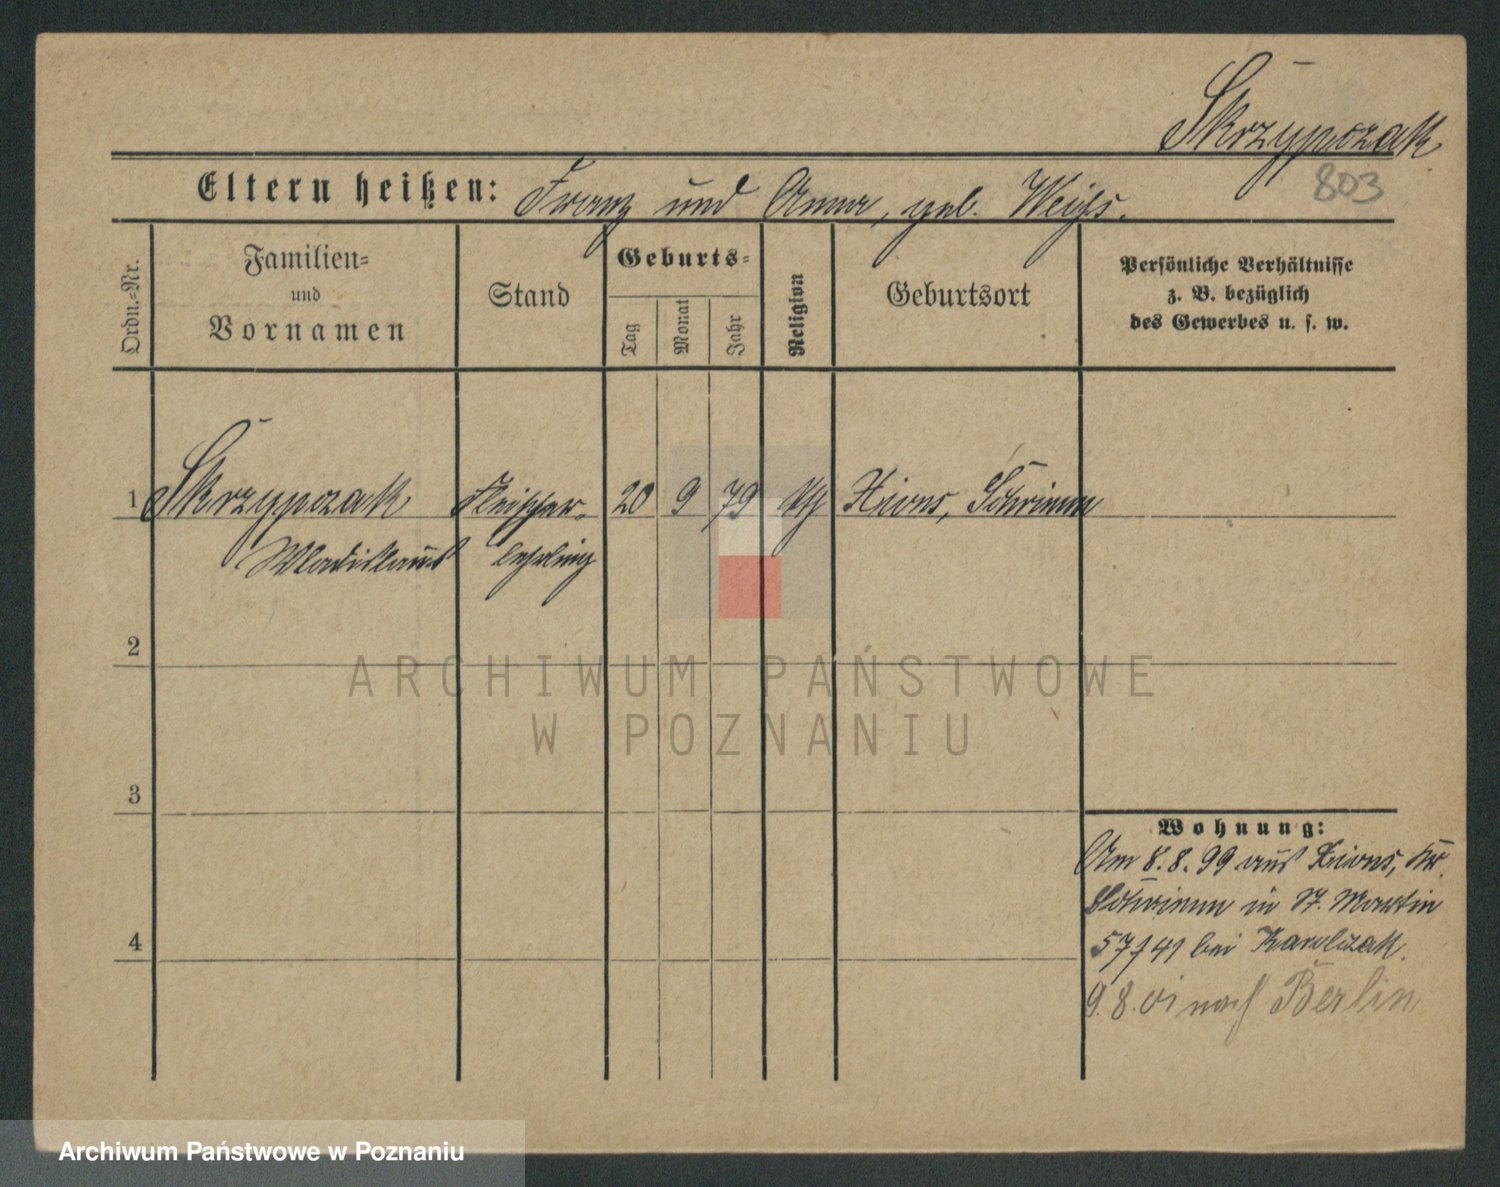 Skrzypczak
803
Eltern heißen: Franz und Anna, geb. Weiss.
Ordn.=Nr.
Familien=
und
Vornamen
Stand
Geburts=
Tag
Monat
Jahr
Religion
Geburtsort
Persönliche Verhältnisse
z. B. bezüglich
des Gewerbes u. s. w.
1 Skrzypczak Fleischer- 20 9 79 kth Xions, Schrimm
Wladislaus lehrling
2
3
4
Wohnung:
Am 8.8.99 aus Xions, Kr.
Schrimm in St. Martin
57/41 bei Karolczak.
9.8.01 nach Berlin
ARCHIWUM PAŃSTWOWE
W POZNANIU
Archiwum Państwowe w Poznaniu